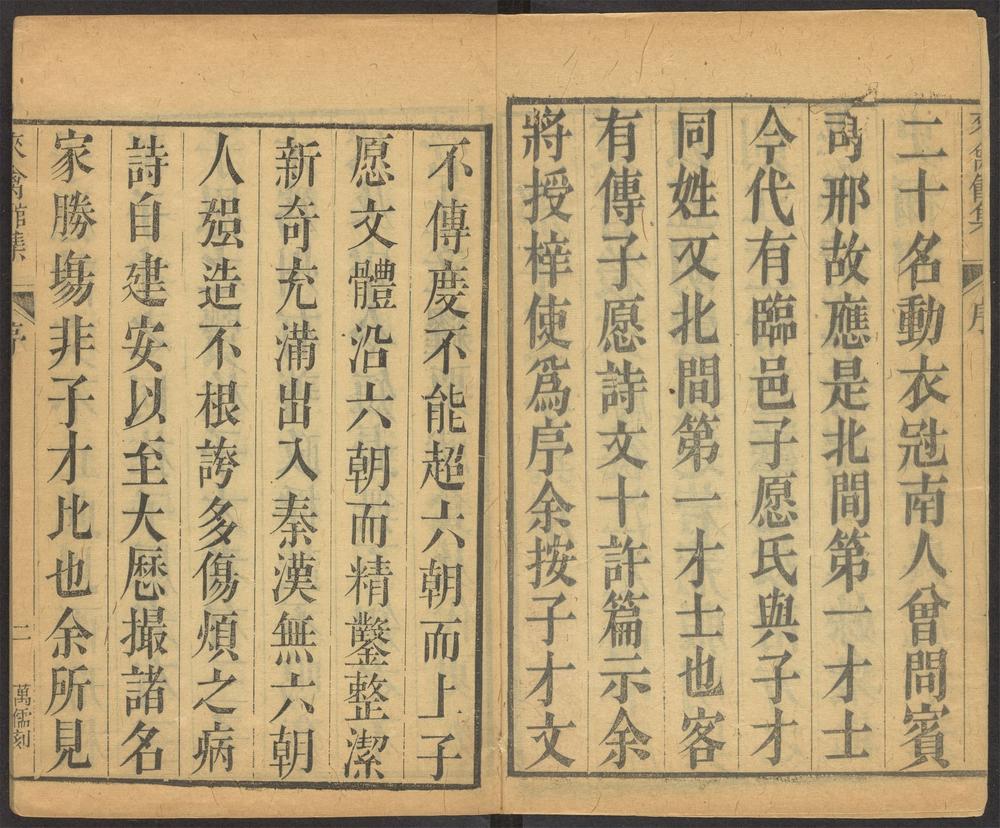 來禽館集
序
二十名動衣冠南人曾問賓
司邢故應是北間第一才士
今代有臨邑子愿氏與子才
同姓又北間第一才士也客
有傳子愿詩文十許篇示余
將授梓使爲序余按子才文
不傳度不能超六朝而上子
愿文體沿六朝而精鑿整潔
新奇充滿出入秦漢無六朝
人强造不根誇多傷煩之病
詩自建安以至大曆撮諸名
家勝塲非子才比也余所見
來禽館集
序
二
萬儒刻